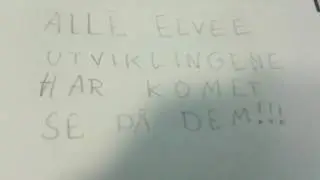 ALLE ELVEE
UTVIKLINGENE
HAR KOMET
SE PÅ DEM!!!